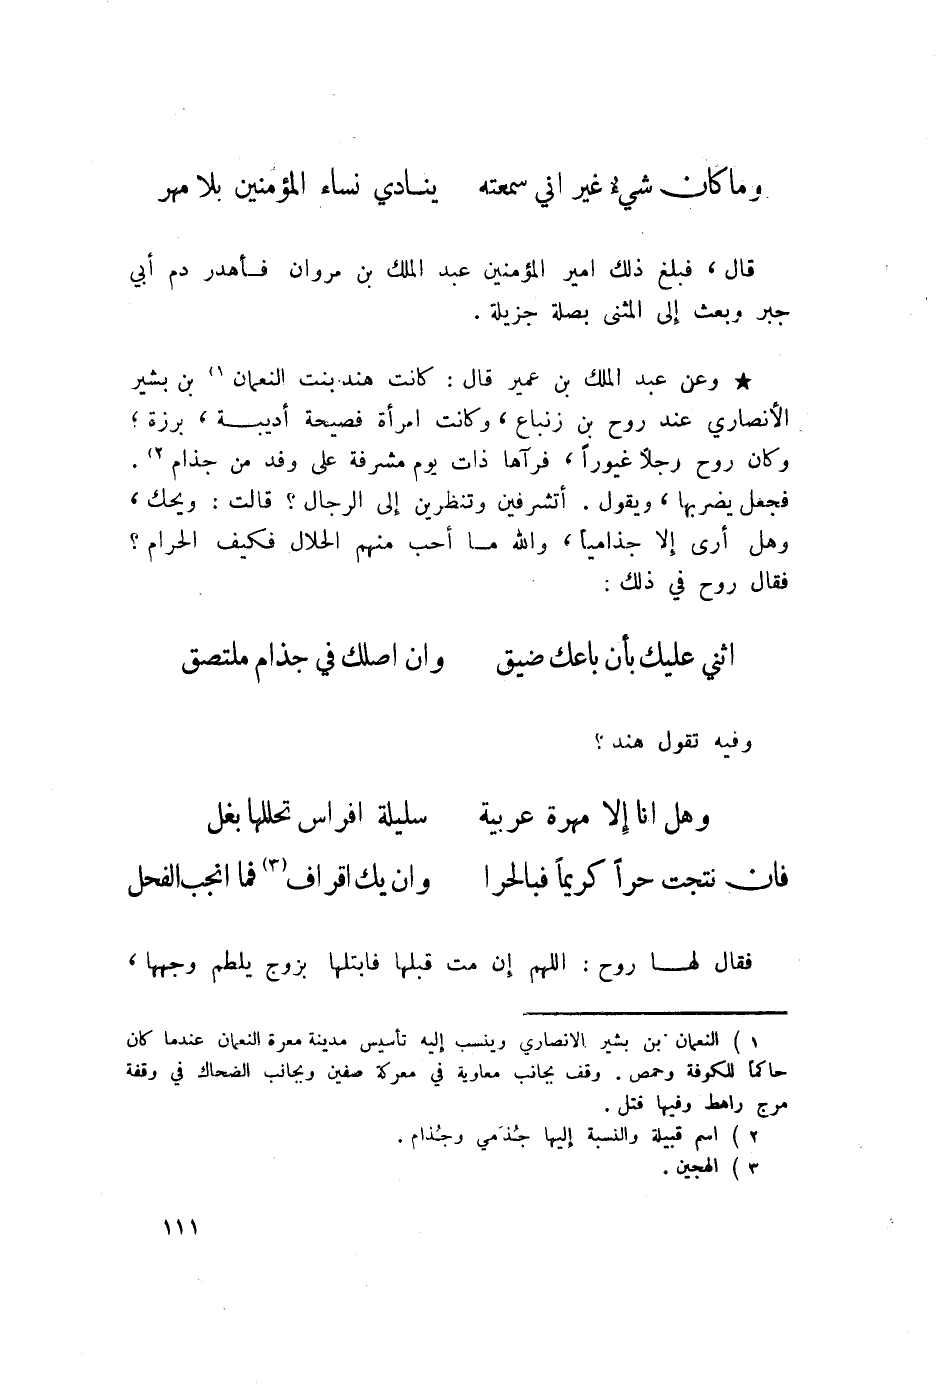 وما كان شيء غير اني سمعته ينادي نساء المؤمنين بلا مهر
قال ، فبلغ ذلك امير المؤمنين عبد الملك بن مروان فأهدر دم أبي
جبر وبعث إلى المثنى بصلة جزيلة .
★ وعن عبد الملك بن عمير قال : كانت هند بنت النعمان ١) بن بشير
الأنصاري عند روح بن زنباع ، وكانت امرأة فصيحة أديبة ، برزة ؛
وكان روح رجلاً غيوراً ، فرآها ذات يوم مشرفة على وفد من جذام ٢) .
فجعل يضربها ، ويقول . أتشرفين وتنظرين إلى الرجال ؟ قالت : ويحك ،
وهل أرى إلا جذامياً ، والله ما أحب منهم الحلال فكيف الحرام ؟
فقال روح في ذلك :
اثني عليك بأن باعك ضيق وان اصلك في جذام ملتصق
وفيه تقول هند ؟
وهل انا إلا مهرة عربية سليلة افراس تحللها بغل
فان نتجت حراً كريماً فبالحرا وان يك اقراف (٣) فما انجب الفحل
فقال لها روح : اللهم إن مت قبلها فابتلها بزوج يلطم وجهها ،
١ ) النعمان بن بشير الانصاري وينسب إليه تأسيس مدينة معرة النعمان عندما كان
حاكماً للكوفة وحمص . وقف بجانب معاوية في معركة صفين وبجانب الضحاك في وقفة
مرج راهط وفيها قتل .
٢ ) اسم قبيلة والنسبة إليها جُذَمي وجُذام .
٣ ) الهجين .
١١١